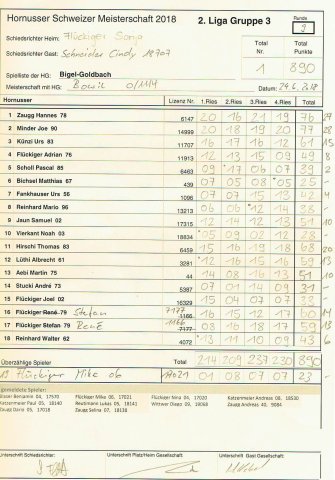 Hornusser Schweizer Meisterschaft 2018 2. Liga Gruppe 3 Runde 3
Schiedsrichter Heim: Flückiger Sonja Total Total
Schiedsrichter Gast: Schneider Cindy 18707 Nr. Punkte
Spielliste der HG: Bigel-Goldbach 1 890
Meisterschaft mit HG: 0/114 Datum: 24.6.2018
Hornusser Lizenz Nr. 1.Ries 2.Ries 3.Ries 4.Ries Total
1 Zaugg Hannes 78 6147 20 16 21 19 76
2 Minder Joe 90 14999 20 18 19 20 77 28
3 Künzi Urs 83 11707 16 17 16 12 61 15
4 Flückiger Adrian 76 11913 12 13 15 09 49 8
5 Scholl Pascal 85 6463 09 17 06 07 39 2
6 Bichsel Matthias 67 439 07 05 08 05 25 -
7 Fankhauser Urs 56 1096 07 07 15 13 42 4
8 Reinhard Mario 96 13213 06 06 12 14 38 -
9 Jaun Samuel 02 17315 12 14 12 13 51 10
10 Vierkant Noah 03 18834 05 09 02 12 28 -
11 Hirschi Thomas 83 6459 15 16 19 18 68 20
12 Lüthi Albrecht 61 3281 12 16 15 16 59 13
13 Aebi Martin 75 44 14 08 16 13 51 10
14 Stucki André 73 5387 07 01 14 09 31 -
15 Flückiger Joel 02 16329 15 04 07 07 32
16 Flückiger René 79 Stefan 7177 16 15 12 17 60 14
17 Flückiger Stefan 79 René 7177 08 16 18 17 59 13
18 Reinhard Walter 62 4072 13 11 10 09 43 6
Überzählige Spieler Total 214 209 237 230 890
19 Flückiger Mike 06 17021 01 08 07 07 23 -
gemeldete Spieler:
Blaser Benjamin 04, 17570 Flückiger Mike 06, 17021 Flückiger Nina 04, 17020 Katzenmeier Andreas 08, 18530
Katzenmeier Paul 05, 18140 Reutimann Lukas 05, 18141 Wittwer Diego 09, 18068 Zaugg Andreas 40, 9084
Zaugg Dario 05, 17318 Zaugg Selina 07, 18138
Unterschrift Schiedsrichter: Unterschrift Platz/Heim Gesellschaft: Unterschrift Gast Gesellschaft: